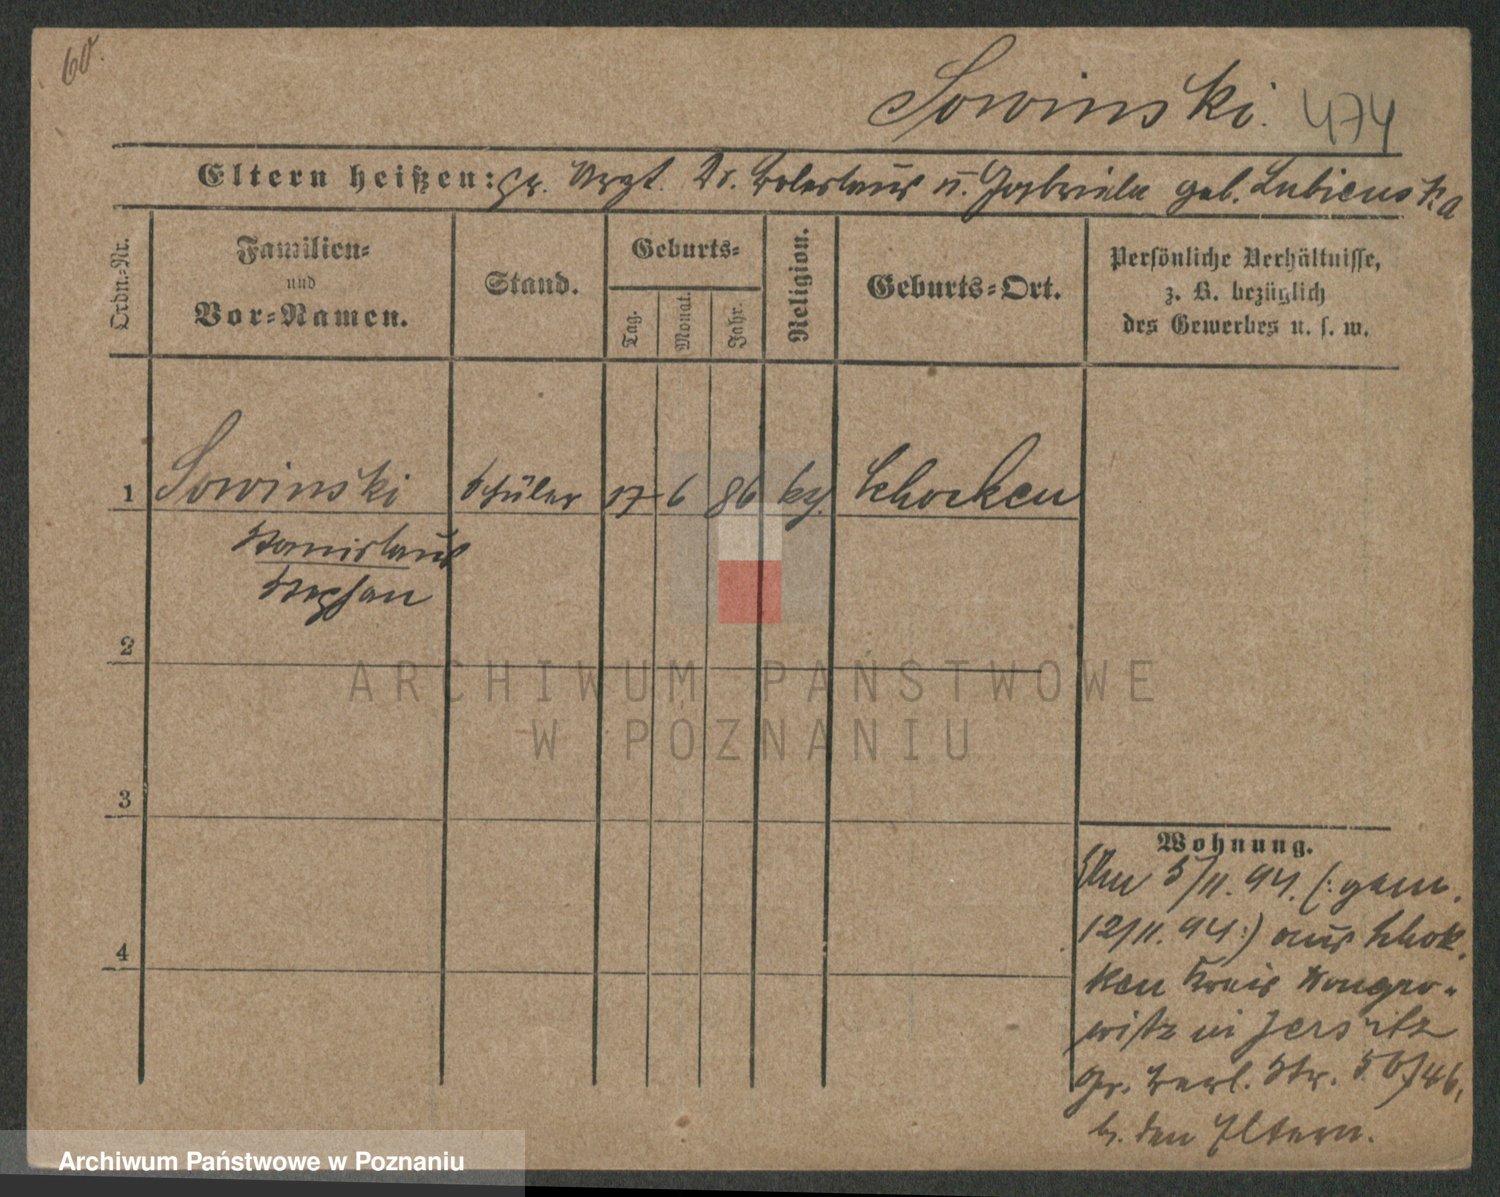 60.
Sowinski. 474
Eltern heißen: pr. Arzt. Dr. Boleslaus u. Gabriela geb. Lubienska
Ordn.-Nr.
Familien-
und
Vor-Namen.
Stand.
Geburts-
Tag.
Monat.
Jahr.
Religion.
Geburts-Ort.
Persönliche Verhältnisse,
z. B. bezüglich
des Gewerbes u. s. w.
1 Sowinski Schüler 17 6 86 kth. Schocken
Stanislaus
Stephan
2
3
4
ARCHIWUM PAŃSTWOWE
W POZNANIU
Wohnung.
Am 5/11. 94. (: gem.
12/11. 94 :) aus Schok-
ken Kreis Wongro-
witz in Jersitz
Gr. Berl. Str. 50/46,
b. den Eltern.
Archiwum Państwowe w Poznaniu